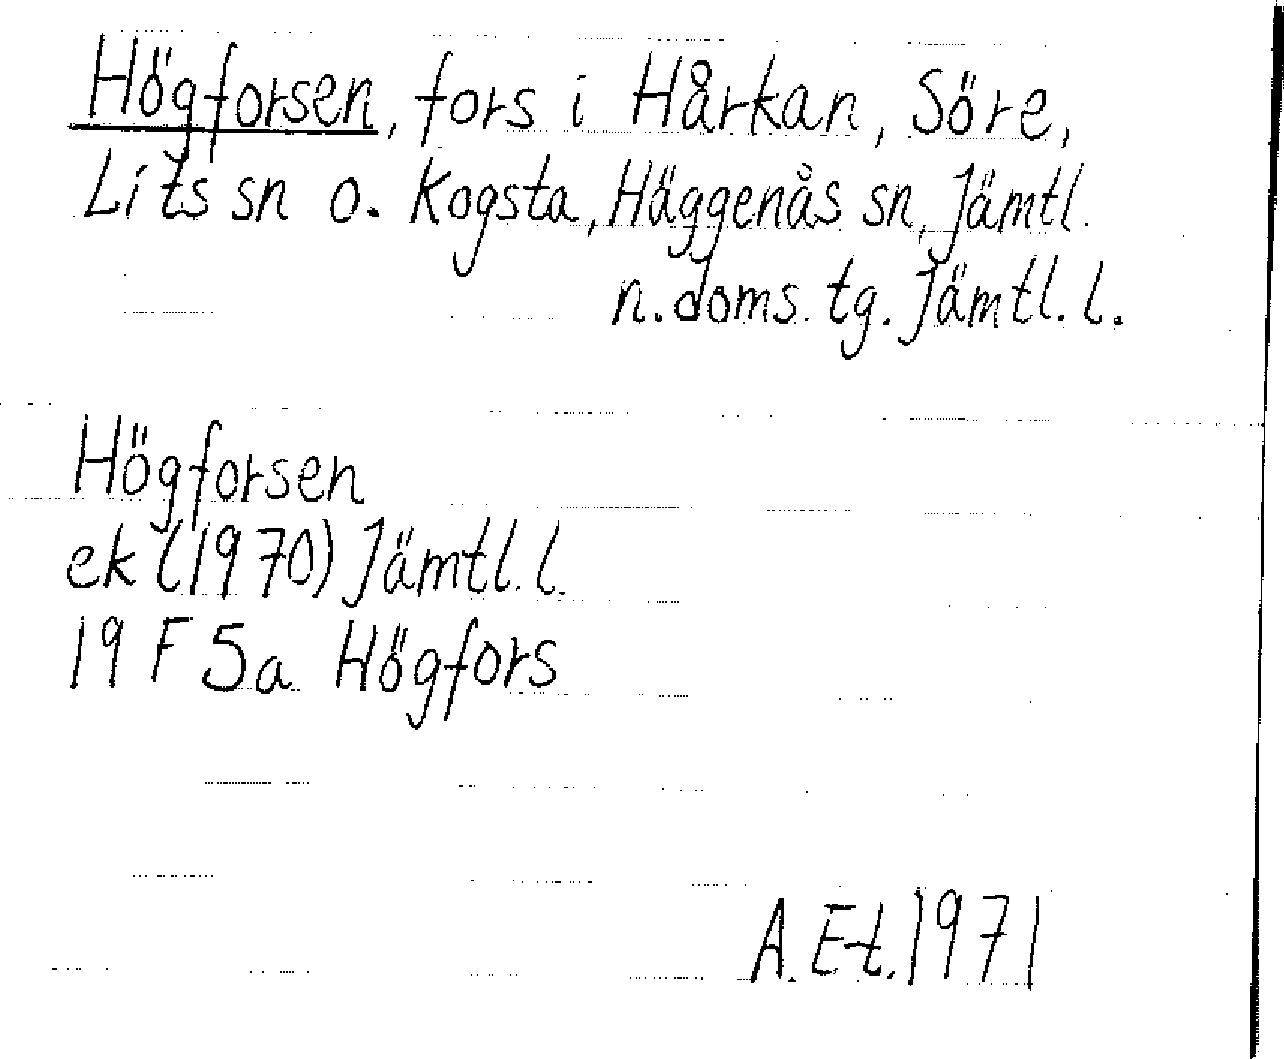 Högforsen, fors i Hårkan, Söre,
Lits sn o. Kogsta, Häggenås sn, Jämtl.
n. doms. tg. Jämtl. l.
Högforsen
ek (1970) Jämtl. l.
19 F 5a Högfors
A. E-t. 1971